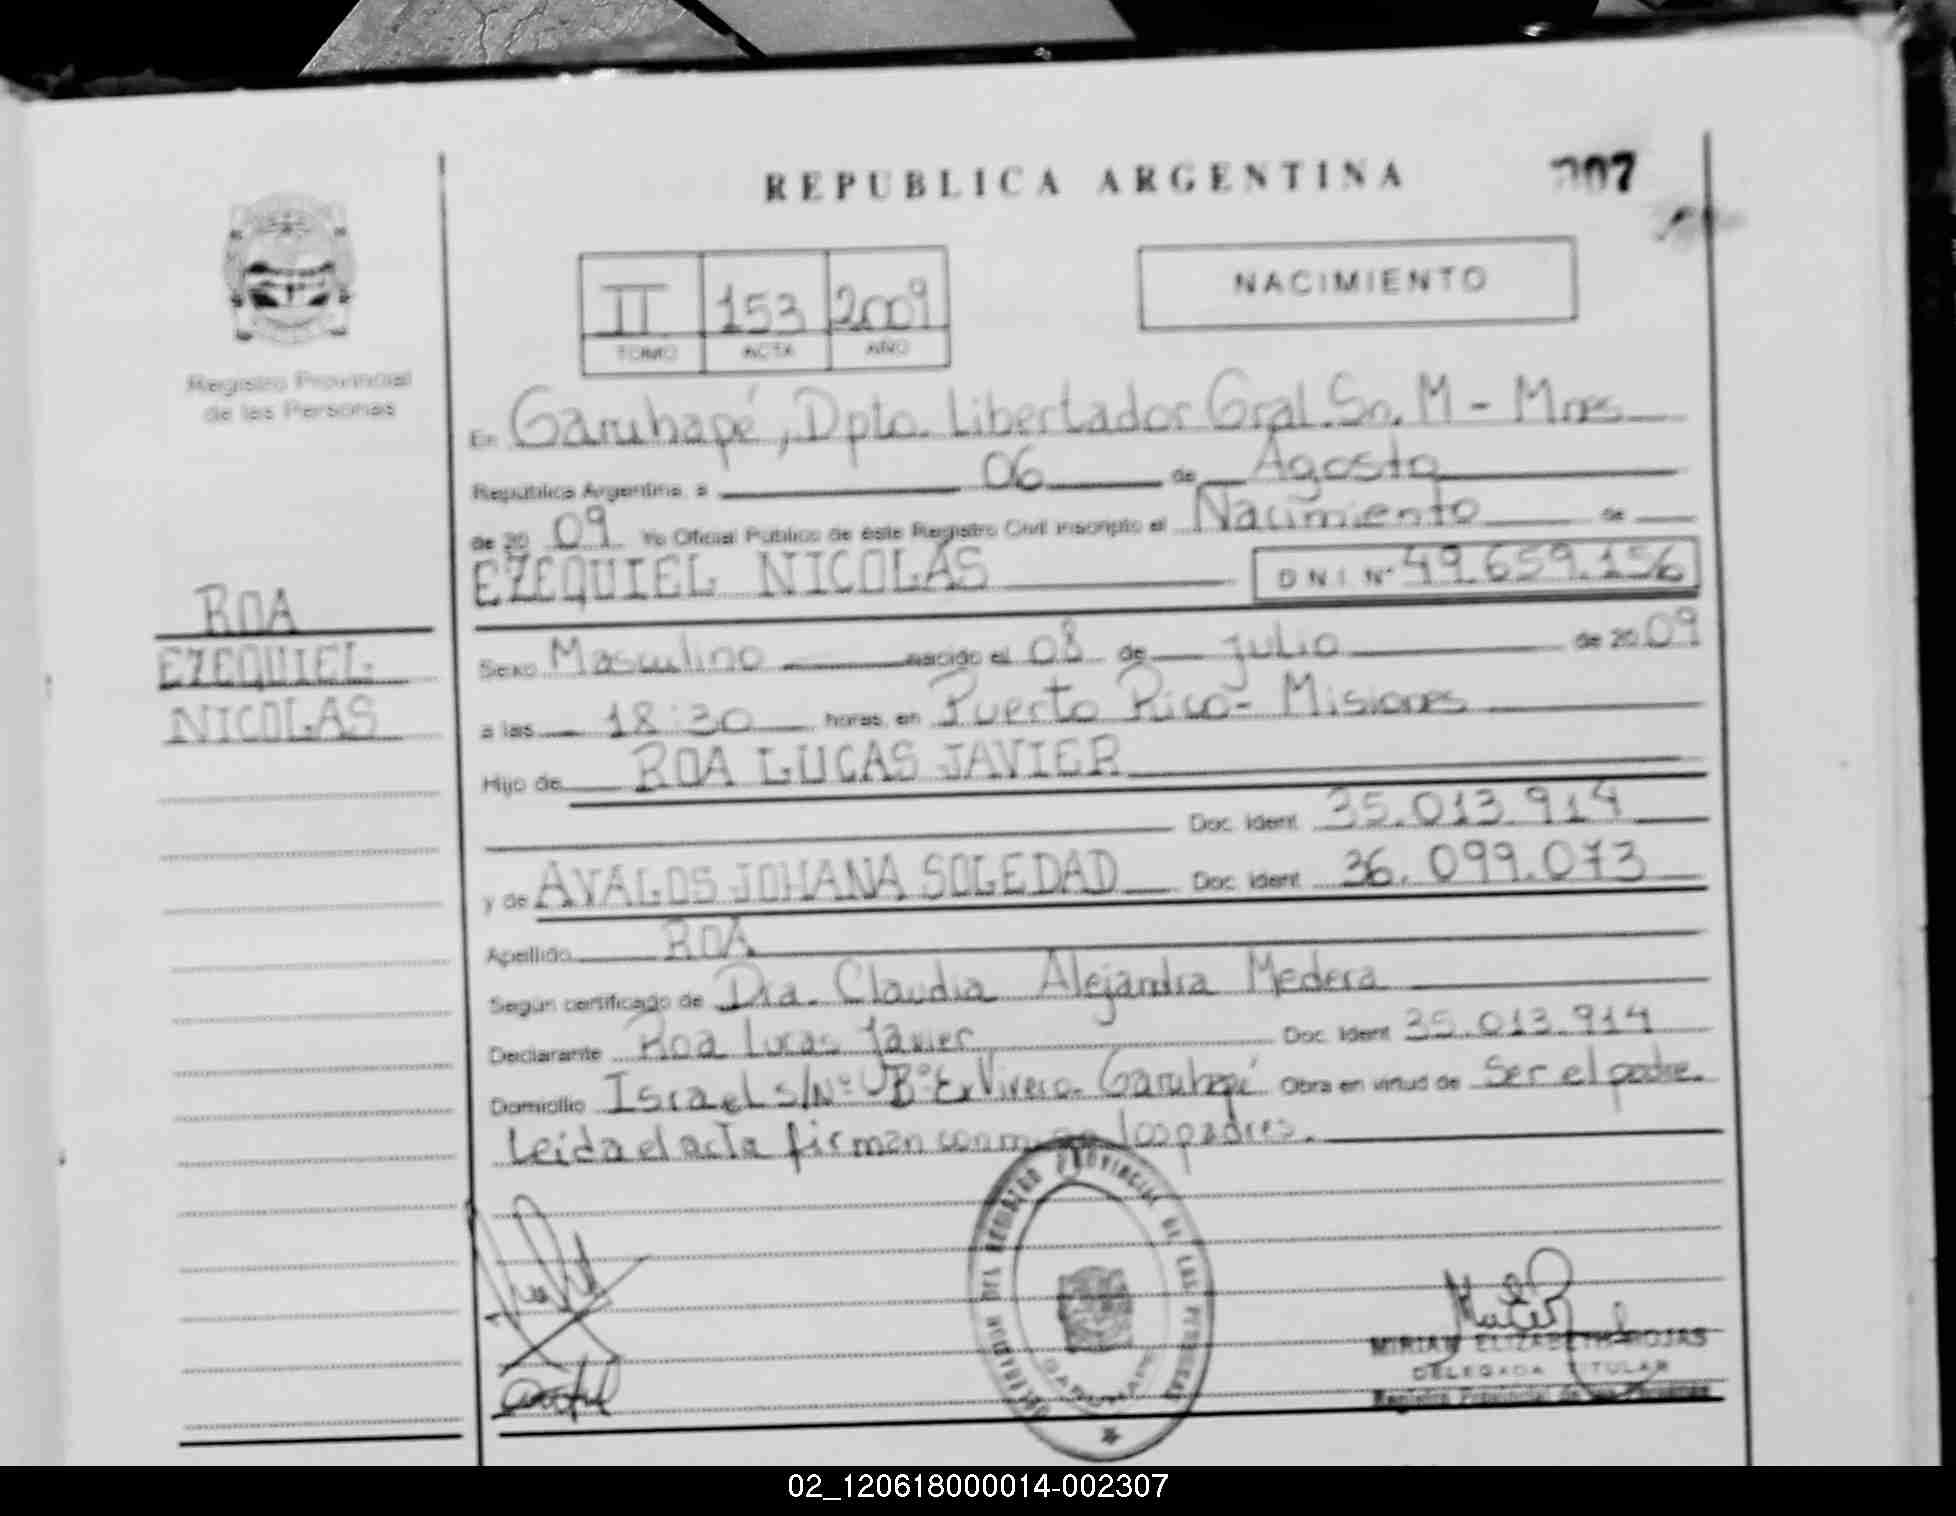 REPUBLICA ARGENTINA
NACIMIENTO
II 153 2009
TOMO ACTA AÑO
Registro Provincial
de las Personas
En Garuhapé, Dpto. Libertador Gral. Sn. M - Mnes
República Argentina, a 06 de Agosto
de 20 09 Yo Oficial Público de éste Registro Civil inscripto el Nacimiento de
EZEQUIEL NICOLÁS D N I Nº 49.659.156
ROA
EZEQUIEL
NICOLAS
Sexo Masculino nacido el 08 de julio de 20 09
a las 18:30 horas, en Puerto Rico - Misiones
Hijo de ROA LUCAS JAVIER
Doc. Ident 35.013.914
y de AVALOS JOHANA SOLEDAD Doc. Ident 36.099.073
Apellido ROA
Según certificado de Dra. Claudia Alejandra Medera
Declarante Roa Lucas Javier Doc. Ident 35.013.914
Domicilio Israel s/Nº Bº Ex Vivero - Garuhapé Obra en virtud de Ser el padre.
Leida el acta firman los padres.
DELEGACION DEL REGISTRO PROVINCIAL DE LAS PERSONAS
GARUHAPE
MIRIAM ELIZABETH ROJAS
DELEGADA TITULAR
Registro Provincial de las Personas
02_120618000014-002307